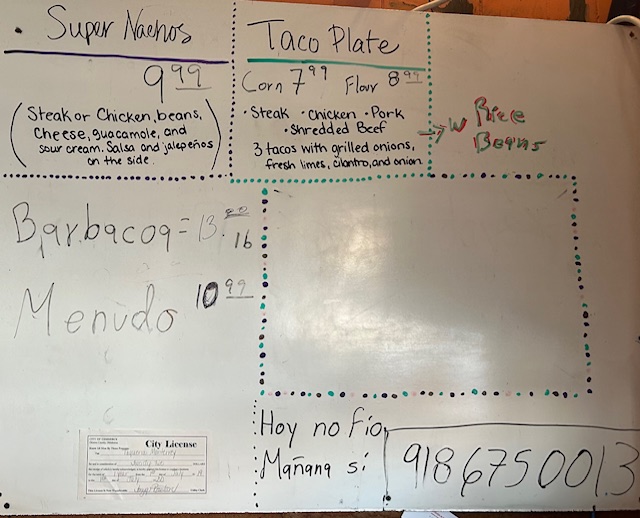 Super Nachos
9 99
(Steak or Chicken, beans,
Cheese, guacamole, and
sour cream. Salsa and jalepeños
on the side.)
Taco Plate
Corn 7 99 Flour 8 99
• Steak • Chicken • Pork
• Shredded Beef
3 tacos with grilled onions,
fresh limes, cilantro, and onion
→ W Rice
Beans
Barbacoa = 13.
16
Menudo 10 99
City License
Hoy no Fio,
Mañana sí
9186750013